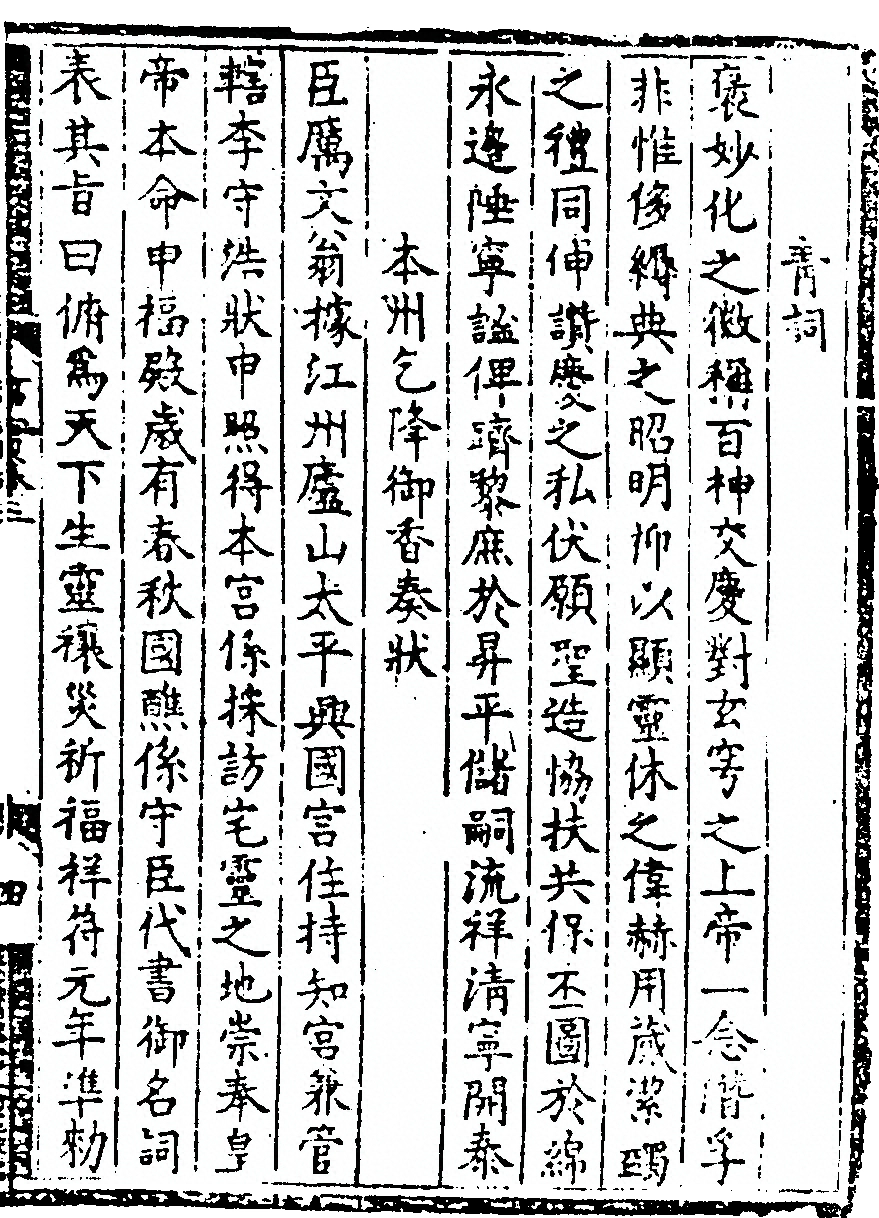 青詞
褒妙化之微稱百神交慶對玄穹之上帝一念潛孚
非惟侈縟典之昭明抑以顯靈休之偉赫用蕆潔蠲
之禮同伸讚慶之私伏願聖造協扶共保丕圖於綿
永邊陲寧謐俾躋黎庶於昇平儲嗣流祥清寧開泰
本州乞降御香奏狀
臣厲文翁據江州廬山太平興國宮住持知宮兼管
轄李守浩狀申照得本宮係採訪宅靈之地崇奉皇
帝本命申福殿歲有春秋國醮係守臣代書御名詞
表其旨曰俯為天下生靈禳災祈福祥符元年準勑
四